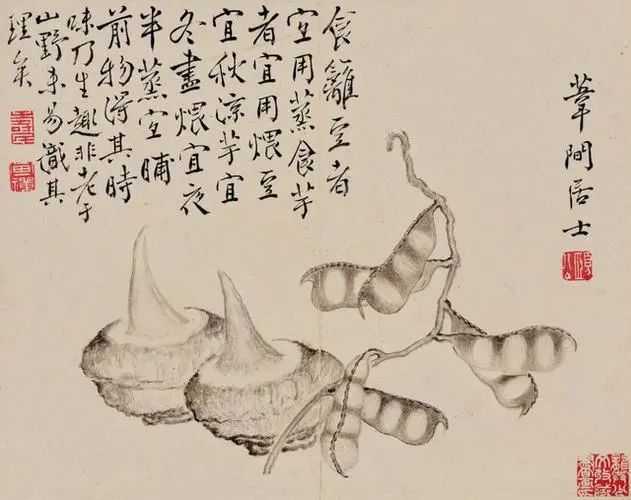 食籬豆者
宜用蒸食芋
者宜用煨豆
宜秋涼芋宜
冬盡煨宜夜
半蒸宜晡
前物得其時
味乃生趣非老于
山野未易識其
理矣
葦間居士